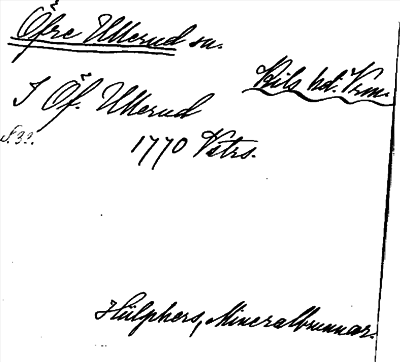 Öfre Ullerud sn.
Kils hd. Vrm.
I Öf. Ullerud
S. 33.
1770 Vstrs.
Hülphers, Mineralbrunnar.